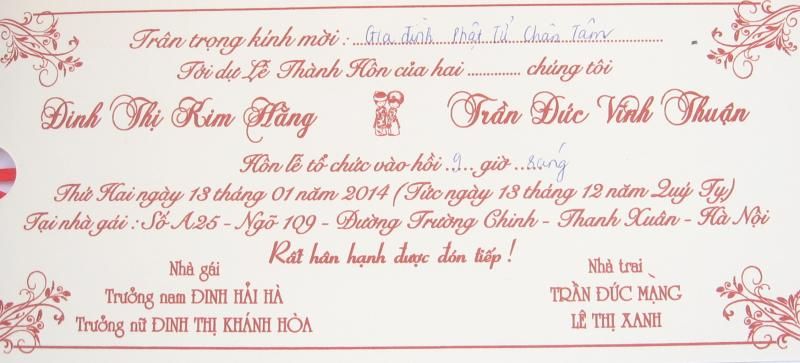 Trân trọng kính mời : Gia đình Phật Tử Chân Tâm
Tới dự Lễ Thành Hôn của hai .............. chúng tôi
Đinh Thị Kim Hằng Trần Đức Vĩnh Thuận
Hôn lễ tổ chức vào hồi 9 giờ sáng
Thứ Hai ngày 13 tháng 01 năm 2014 (Tức ngày 13 tháng 12 năm Quý Tỵ)
Tại nhà gái : Số A25 - Ngõ 109 - Đường Trường Chinh - Thanh Xuân - Hà Nội
Rất hân hạnh được đón tiếp !
Nhà gái
Trưởng nam ĐINH HẢI HÀ
Trưởng nữ ĐINH THỊ KHÁNH HÒA
Nhà trai
TRẦN ĐỨC MẠNG
LÊ THỊ XANH